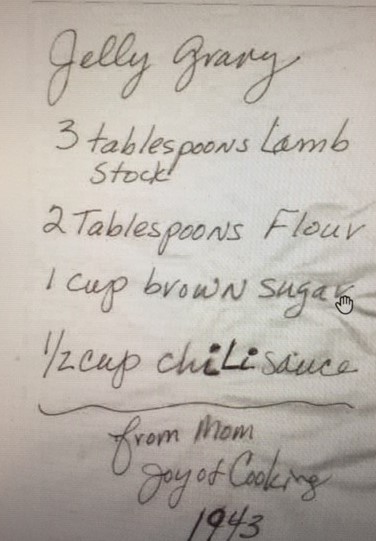 Jelly Gravy
3 tablespoons Lamb
Stock
2 Tablespoons Flour
1 cup brown sugar
1/2 cup chiLi sauce
from Mom
Joy of Cooking
1943